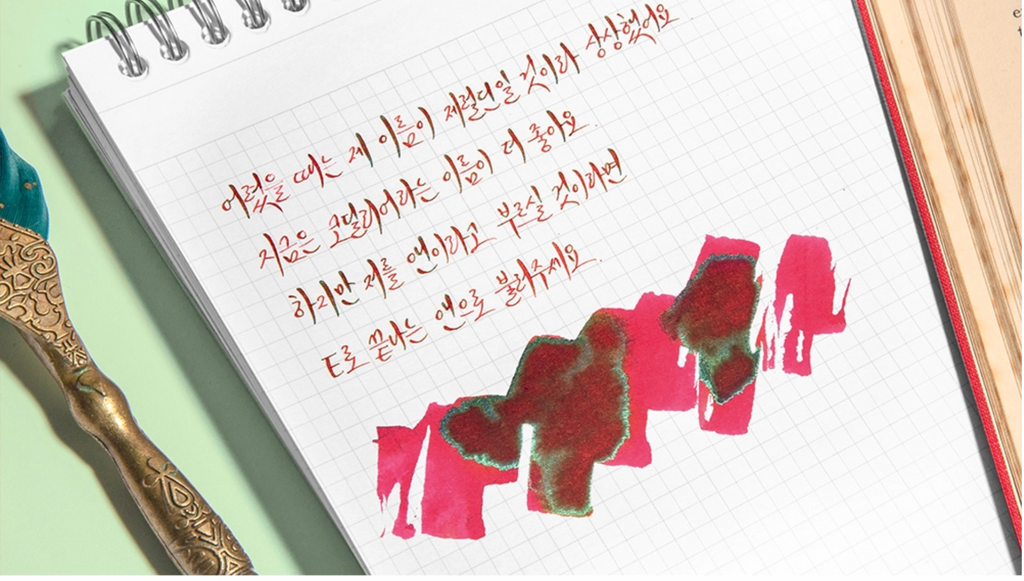 어렸을 때는 제 이름이 제럴딘일 것이라 상상했어요
지금은 코딜리어라는 이름이 더 좋아요.
하지만 저를 앤이라고 부르실 것이라면
E로 끝나는 앤으로 불러주세요.